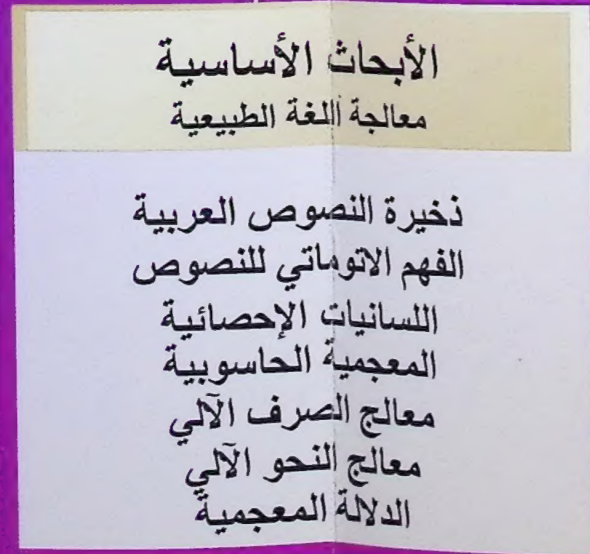 الأبحاث الأساسية
معالجة اللغة الطبيعية
ذخيرة النصوص العربية
الفهم الاتوماتي للنصوص
اللسانيات الإحصائية
المعجمية الحاسوبية
معالج الصرف الآلي
معالج النحو الآلي
الدلالة المعجمية